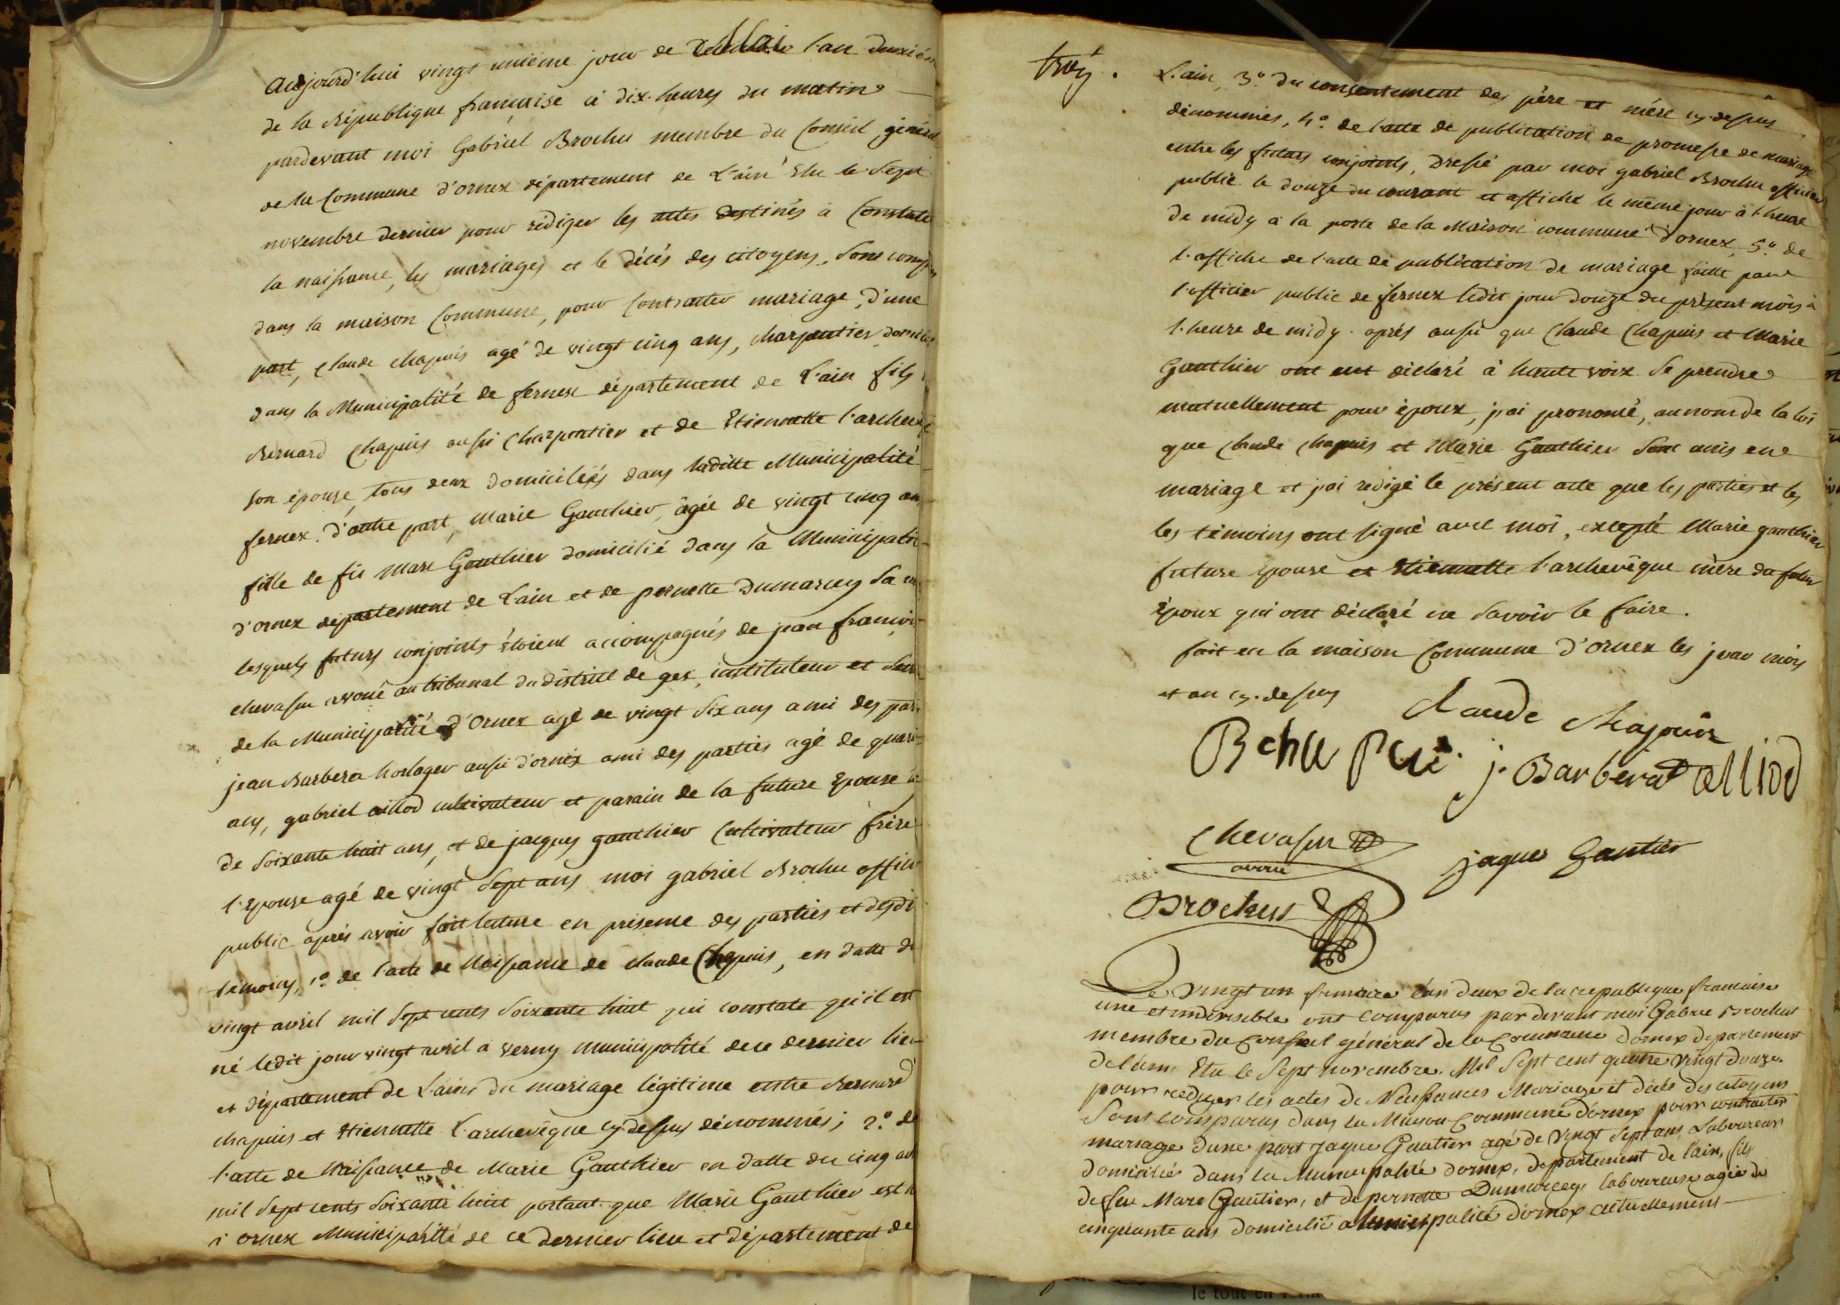 Aujourd'hui vingt unieme jour de l'an deuxiem
de la République françoise à dix heures du matin
pardevant moi Gabriel Brochu membre du Conseil général
de la Commune d'ornex département de L'ain Elu le Sept
novembre dernier pour rédiger les actes destinés à Constater
la naissance, les mariages et le décés des citoyens, Sont comparus
dans la maison Commune, pour Contracter mariage, d'une
part, Claude Chapuis agé de vingt cinq ans, charpentier domicilié
dans la Municipalité de fernex département de L'ain fils
Bernard Chapuis aussi charpentier et de Etiennette l'archevêq
son épouse, tous deux domiciliés dans laditte Municipalité
fernex. d'autre part, Marie Gauthier, âgée de vingt cinq an
fille de fû Marc Gauthier domicilié dans la Municipalit
d'ornex département de L'ain et de pernette Dumarcey Sa
lesquels futurs conjoints étoient accompagnés de jean françoi
chevassu avoué au tribunal du district de gex, instituteur et
de la Municipalité d'Ornex agé de vingt six ans ami des par
jean Barbera horloger aussi d'ornex ami des parties agé de quar
ans, gabriel alliod cultivateur et parain de la future Epouse
de soixante huit ans, et de jacques gauthier Cultivateur frère
l'Epouse agé de vingt Sept ans moi gabriel Brochu offici
public après avoir fait lecture en présence des parties et desdi
témoins, 1º de l'acte de Naissance de claude Chapuis, en datte d
vingt avril mil Sept cents Soixante huit qui constate qu'il est
né ledit jour vingt avril à verny Municipalité de ce dernier lieu
et département de L'ain du mariage légitime entre Bernard
chapuis et Etiennette L'archevêque cy dessus dénommés; 2º de
l'acte de Naissance de Marie Gauthier en datte du cinq
mil Sept cents Soixante huit portant que Marie Gauthier est
à ornex Municipalité de ce dernier lieu et département de
troy.
L'ain, 3º du consentement des père et mère cy-dessus
dénommés, 4º de l'acte de publication de promesse de mariage
entre les futurs conjoints, dressé par moi gabriel Brochu officier
public le douze du courant et affiché le même jour à l'heure
de midy à la porte de la Maison commune d'ornex, 5º de
l'affiche de l'acte de publication de mariage faitte par
l'officier public de fernex ledit jour douze du présent mois à
l'heure de midy. après aussi que Claude Chapuis et Marie
Gauthier ont eut déclaré à haute voix Se prendre
mutuellement pour époux, j'ai prononcé, au nom de la loi
que Claude Chapuis et Marie Gauthier Sont unis en
mariage et j'ai rédigé le présent acte que les parties et les
les témoins ont signé avec moi, excepté Marie gauthier
future épouse et Etiennette l'archevêque mère du futur
époux qui ont déclaré ne Savoir le faire.
fait en la maison Commune d'ornex les jour mois
et an cy-dessus
Claude Chapuis
j. Barberat alliod
Chevassu
avoué
jaques Gautier
Brochus
Le vingt un frimaire l'an deux de la republique francaise
une et indivisible ont comparus par devant moi Gabrie Brochus
membre du Conseil général de la Commune dornex departement
de l'ain Elu le Sept novembre Mil Sept cent quatre vingt douze
pour rediger les actes de Naissances Mariages et décès des citoyens
Sont comparus dans la Maison Commune dornex pour contracter
mariage dune part Jaque Gautier agé de vingt Sept ans Laboureur
domicilié dans la Municipalité dornex, departement de l'ain, fils
de feu Marc Gautier, et de pernette Dumarcey laboureuse agée de
cinquante ans domicilié a Municipalité dornex actuellement